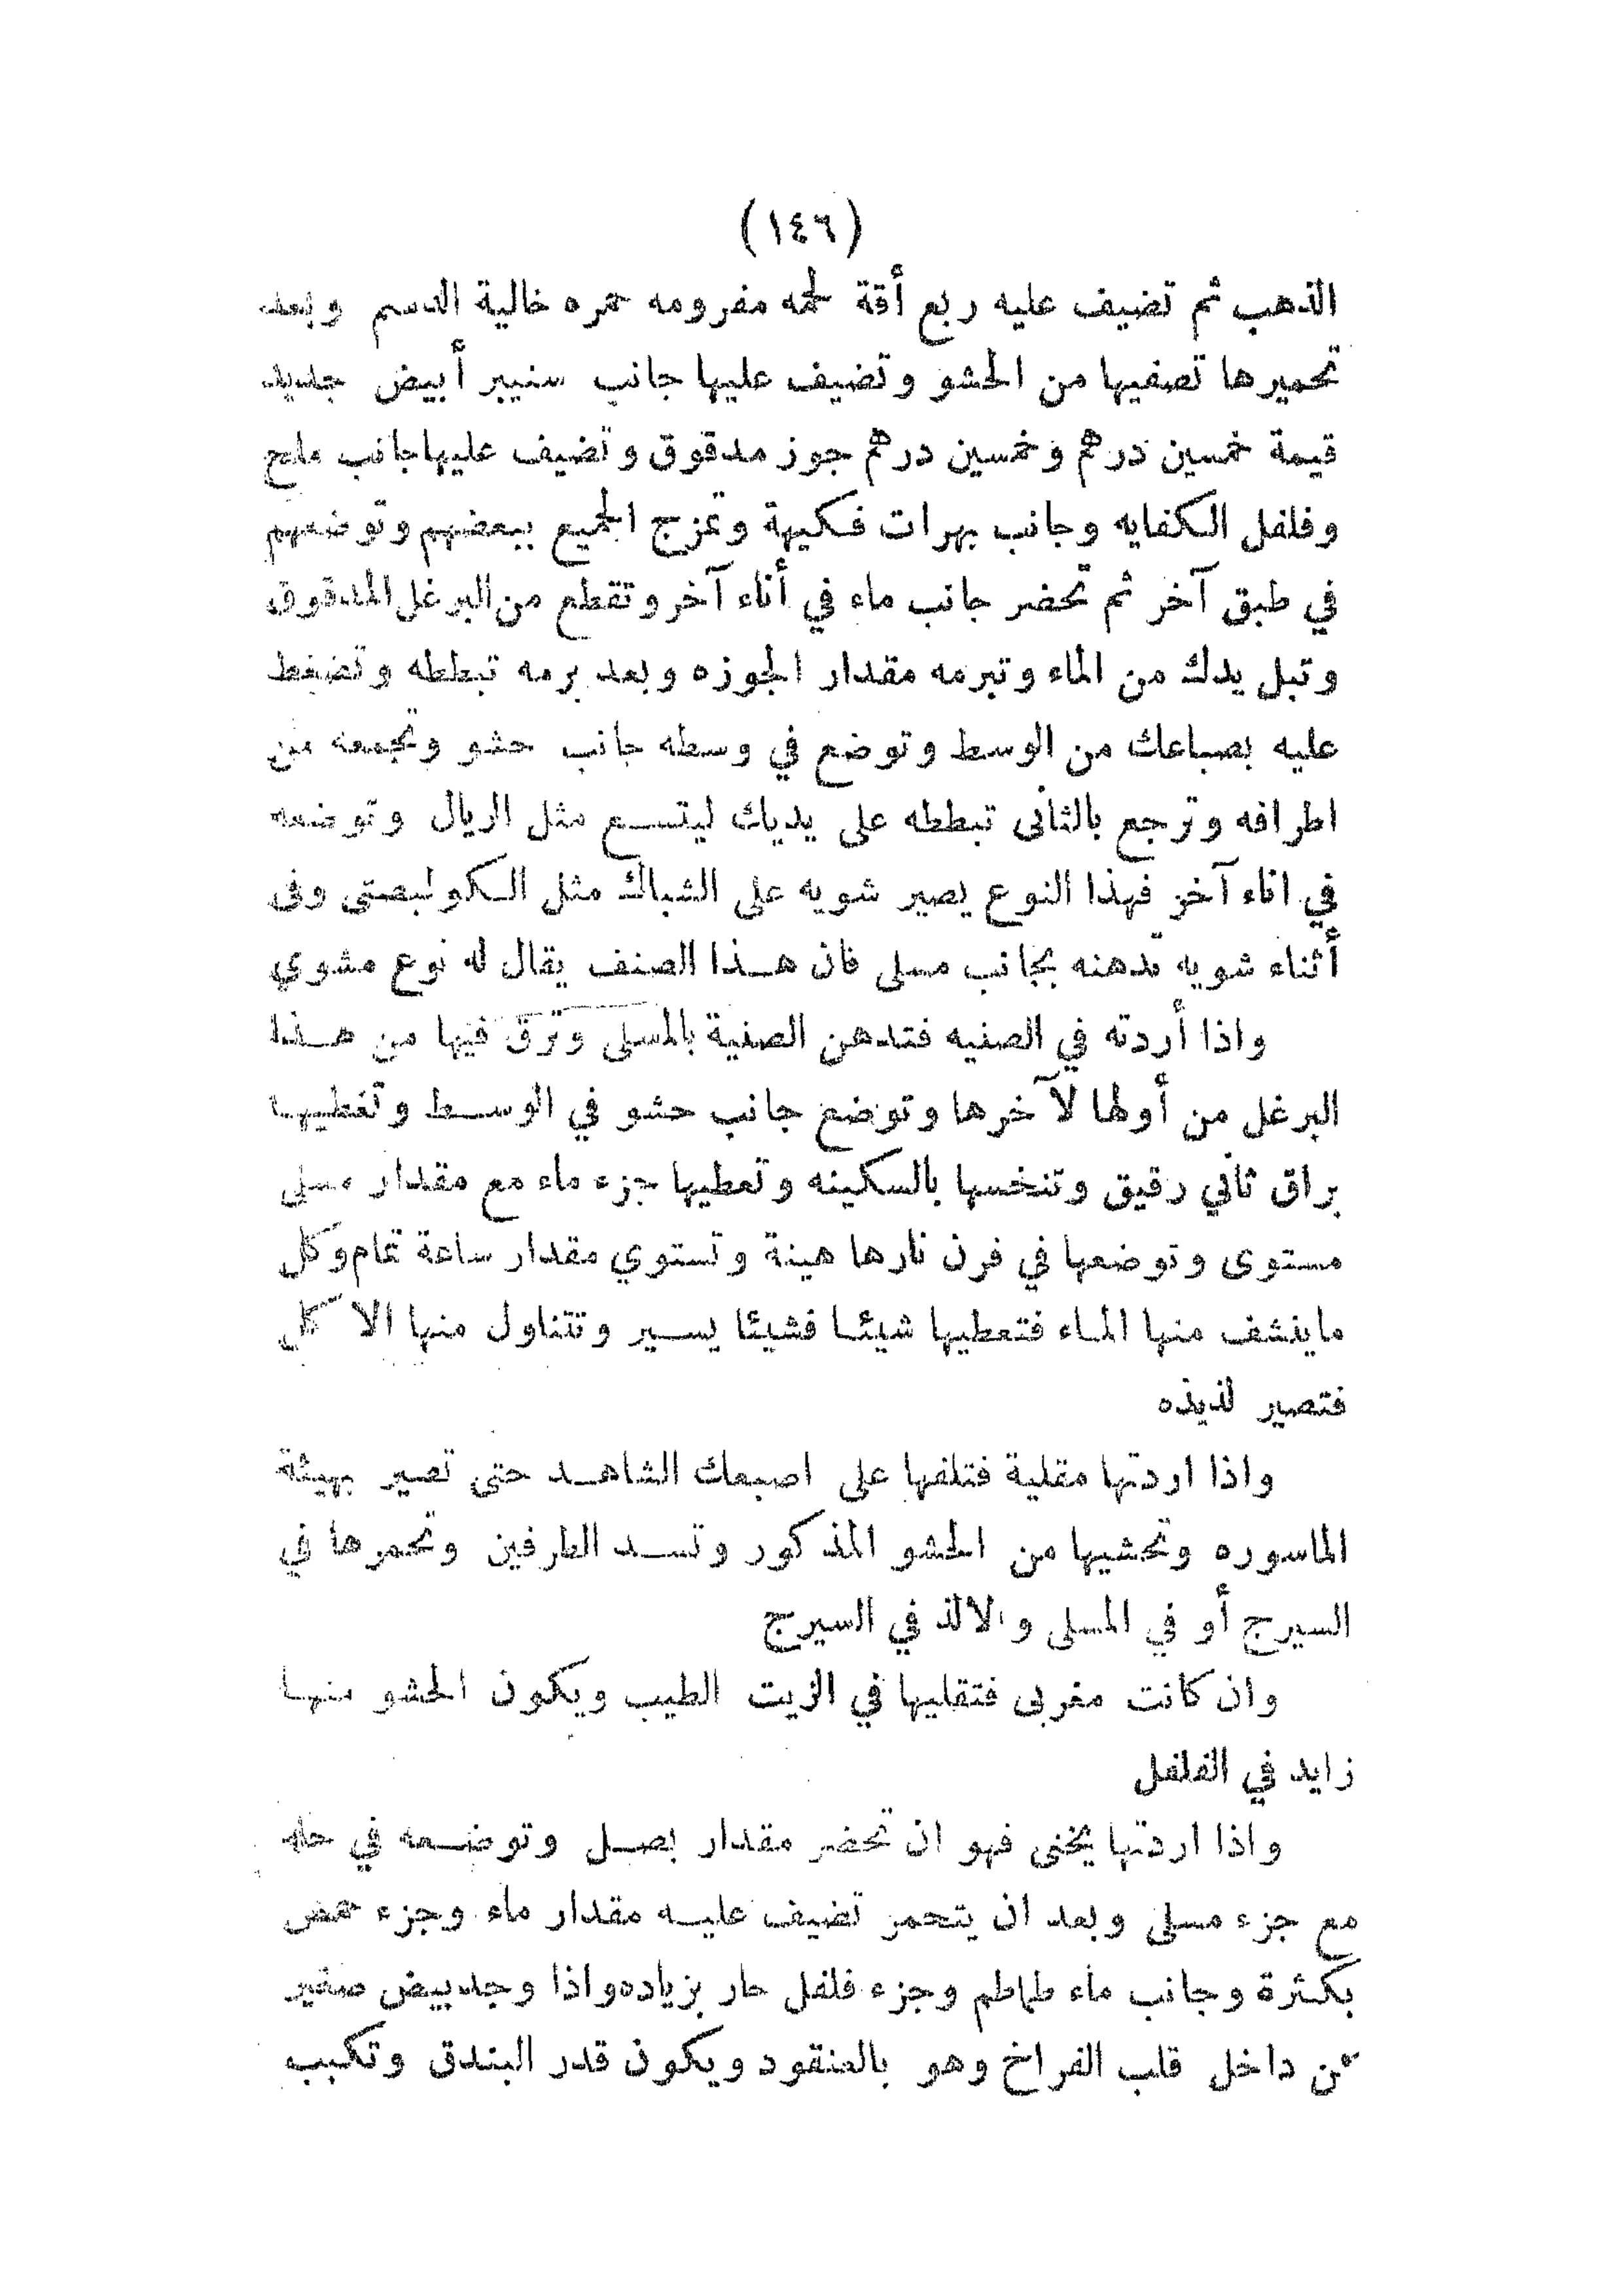 (١٤٦)
الذهب ثم تضيف عليه ربع أقة لحمه مفرومه حمره خالية الدسم وبعد
تحميرها تصفيها من الحشو وتضيف عليها جانب سنيبر أبيض جديد
قيمة خمسين درهم وخمسين درهم جوز مدقوق وتضيف عليها جانب ملح
وفلفل الكفايه وجانب بهرات فكيهة وتمزج الجميع ببعضهم وتوضعهم
في طبق آخر ثم تحضر جانب ماء في أناء آخر وتقطع من البرغل المدقوق
وتبل يدك من الماء وتبرمه مقدار الجوزه وبعد برمه تبططه وتضغط
عليه بصباعك من الوسط وتوضع في وسطه جانب حشو وتجمعه من
اطرافه وترجع بالثانى تبططه على يديك ليتسع مثل الريال وتوضعه
في اناء آخر فهذا النوع يصير شويه على الشباك مثل الكولبصتى وفى
أثناء شويه تدهنه بجانب مسلى فان هذا الصنف يقال له نوع مشوي
واذا أردته في الصنيه فتدهن الصنية بالمسلى وترق فيها من هذا
البرغل من أولها لآخرها وتوضع جانب حشو في الوسط وتغطيها
براق ثاني رقيق وتنخسها بالسكينه وتعطيها جزء ماء مع مقدار مسلى
مستوى وتوضعها في فرن نارها هينة وتستوي مقدار ساعة تمام وكل
ماينشف منها الماء فتعطيها شيئا فشيئا يسير وتتناول منها الاكل
فتصير لذيذه
واذا اردتها مقلية فتلفها على اصبعك الشاهد حتى تصير بهيئة
الماسوره وتحشيها من الحشو المذكور وتسد الطرفين وتحمرها في
السيرج أو في المسلى والالذ في السيرج
وان كانت مغربى فتقليها في الزيت الطيب ويكون الحشو منها
زايد في الفلفل
واذا اردتها يخنى فهو ان تحضر مقدار بصل وتوضعه في حله
مع جزء مسلى وبعد ان يتحمر تضيف عليه مقدار ماء وجزء حمص
بكثرة وجانب ماء طماطم وجزء فلفل حار بزياده واذا وجد بيض صغير
من داخل قلب الفراخ وهو بالعنقود ويكون قدر البندق وتكبب